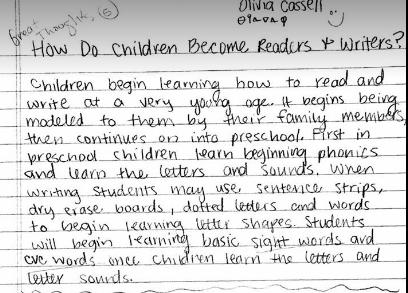 Great Thoughts, (5)
Olivia Cassell
How Do Children Become Readers & Writers?
Children begin learning how to read and
write at a very young age. It begins being
modeled to them by their family members,
then continues on into preschool. First in
preschool children learn beginning phonics
and learn the letters and sounds. When
writing students may use sentence strips,
dry erase boards, dotted letters and words
to begin learning letter shapes. Students
will begin learning basic sight words and
cvc words once children learn the letters and
letter sounds.